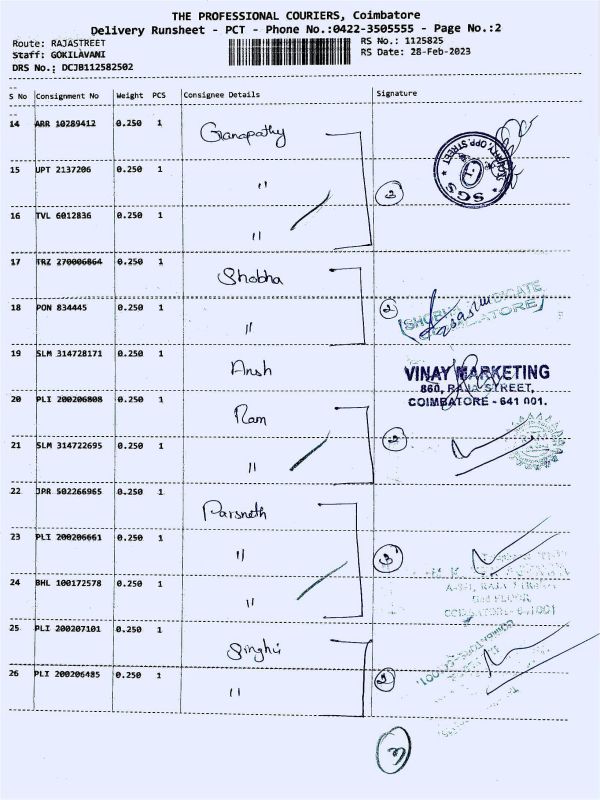 THE PROFESSIONAL COURIERS, Coimbatore
Delivery Runsheet - PCT - Phone No.:0422-3505555 - Page No.:2
Route: RAJASTREET
Staff: GOKILAVANI
DRS No.: DCJB112582502
RS No.: 1125825
RS Date: 28-Feb-2023
S No Consignment No Weight PCS Consignee Details Signature
14 ARR 10289412 0.250 1 Ganapathy
15 UPT 2137206 0.250 1 "
3
16 TVL 6012836 0.250 1 "
SGS
OPP STREET
17 TRZ 270006864 0.250 1 Shobha
18 PON 834445 0.250 1 "
2
19 SLM 314728171 0.250 1 Ansh
VINAY MARKETING
860, RAJA STREET,
COIMBATORE - 641 001.
20 PLI 200206808 0.250 1 Ram
21 SLM 314722695 0.250 1 "
2
22 JPR 502266965 0.250 1 Parsneth
23 PLI 200206661 0.250 1 "
3
24 BHL 100172578 0.250 1 "
COIMBATORE - 641001
25 PLI 200207101 0.250 1 Singhvi
26 PLI 200206485 0.250 1 "
2